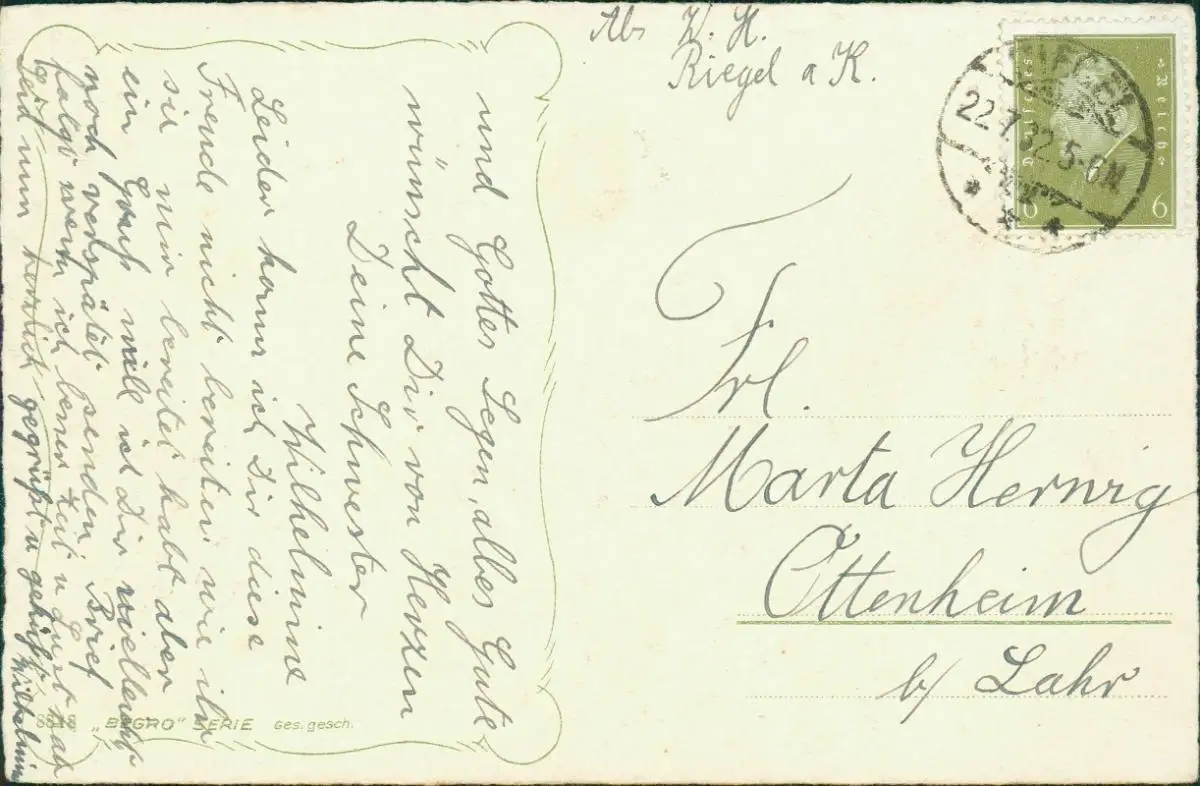 Abs W. H.
Riegel a K.
Deutsches Reich
6 6
RIEGEL
22.7.32.5-6N
Frl.
Marta Herwig
Ottenheim
b/ Lahr
und Gottes Segen, alles Gute
wünscht Dir von Herzen
Deine Schwester
Wilhelmine
Leider kann ich Dir diese
Freude nicht bereiten wie ihr
sie mir bereitet habt aber
ein will ich Dir vielleicht
noch verspätet senden, Brief
folgt wenn ich Zeit u Lust hab
Seid nun herzlich gegrüßt u geküßt
Wilhelmine
8848 „BEGRO" SERIE Ges. gesch.